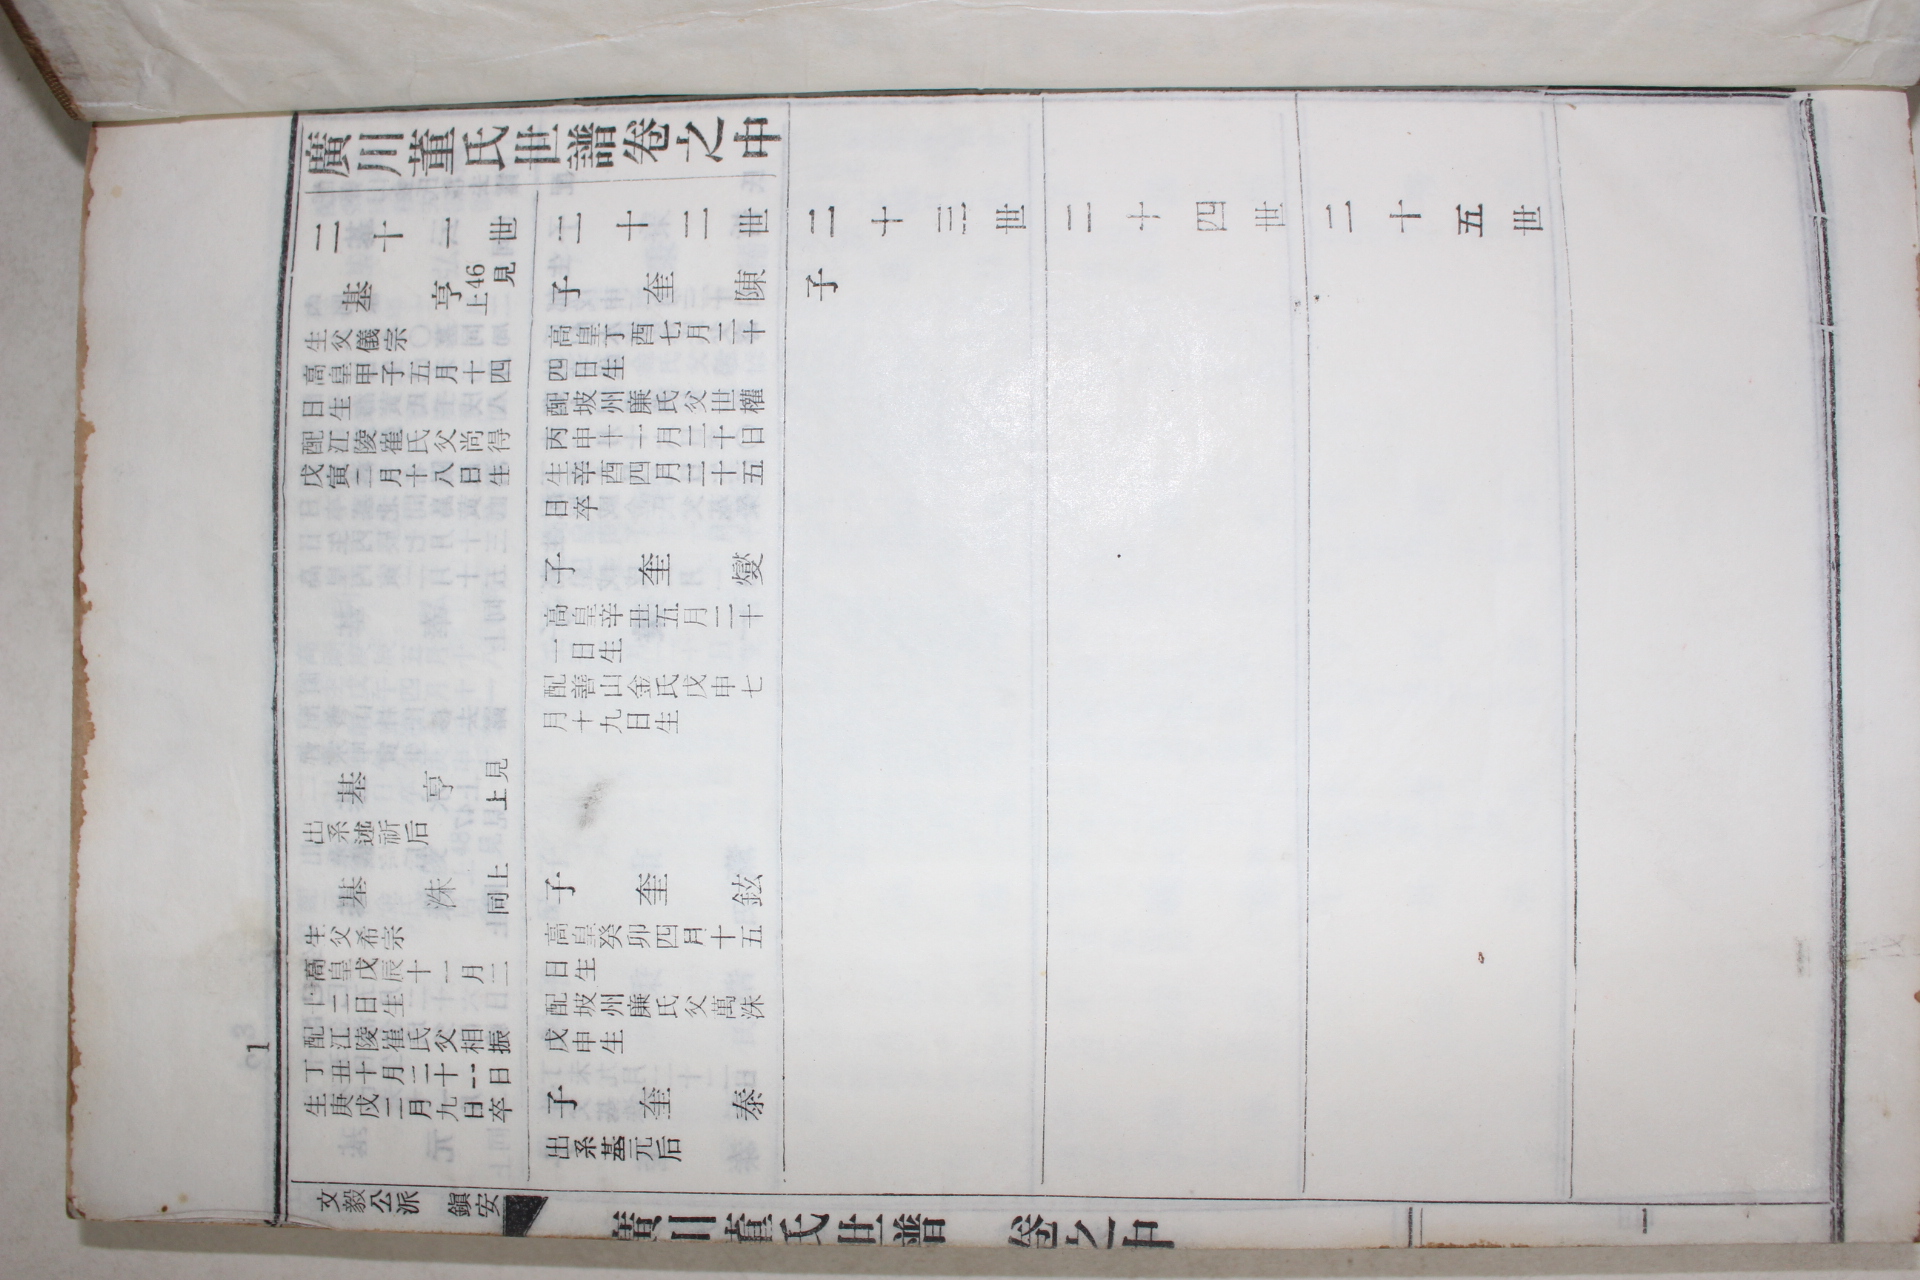 廣川董氏世譜卷之中
二十一世
基亨 上46見
生父儀宗
高皇甲子五月十四
日生
配江陵崔氏父尚得
戊寅二月十八日生
基亨 上見
出系述祈后
基洙 同上
生父希宗
高皇戊辰十一月二
十二日生
配江陵崔氏父相振
丁丑十月二十二日
生庚戌二月九日卒
二十二世
子奎陳
高皇丁酉七月二十
四日生
配坡州廉氏父世權
丙申十一月三十日
生辛酉四月二十五
日卒
子奎燮
高皇辛丑五月二十
一日生
配善山金氏戊申七
月十九日生
子奎鉉
高皇癸卯四月十五
日生
配坡州廉氏父萬洙
戊申生
子奎泰
出系基元后
二十三世
子
二十四世
二十五世
文毅公派 鎭安
廣川董氏世譜 卷之中
一
1